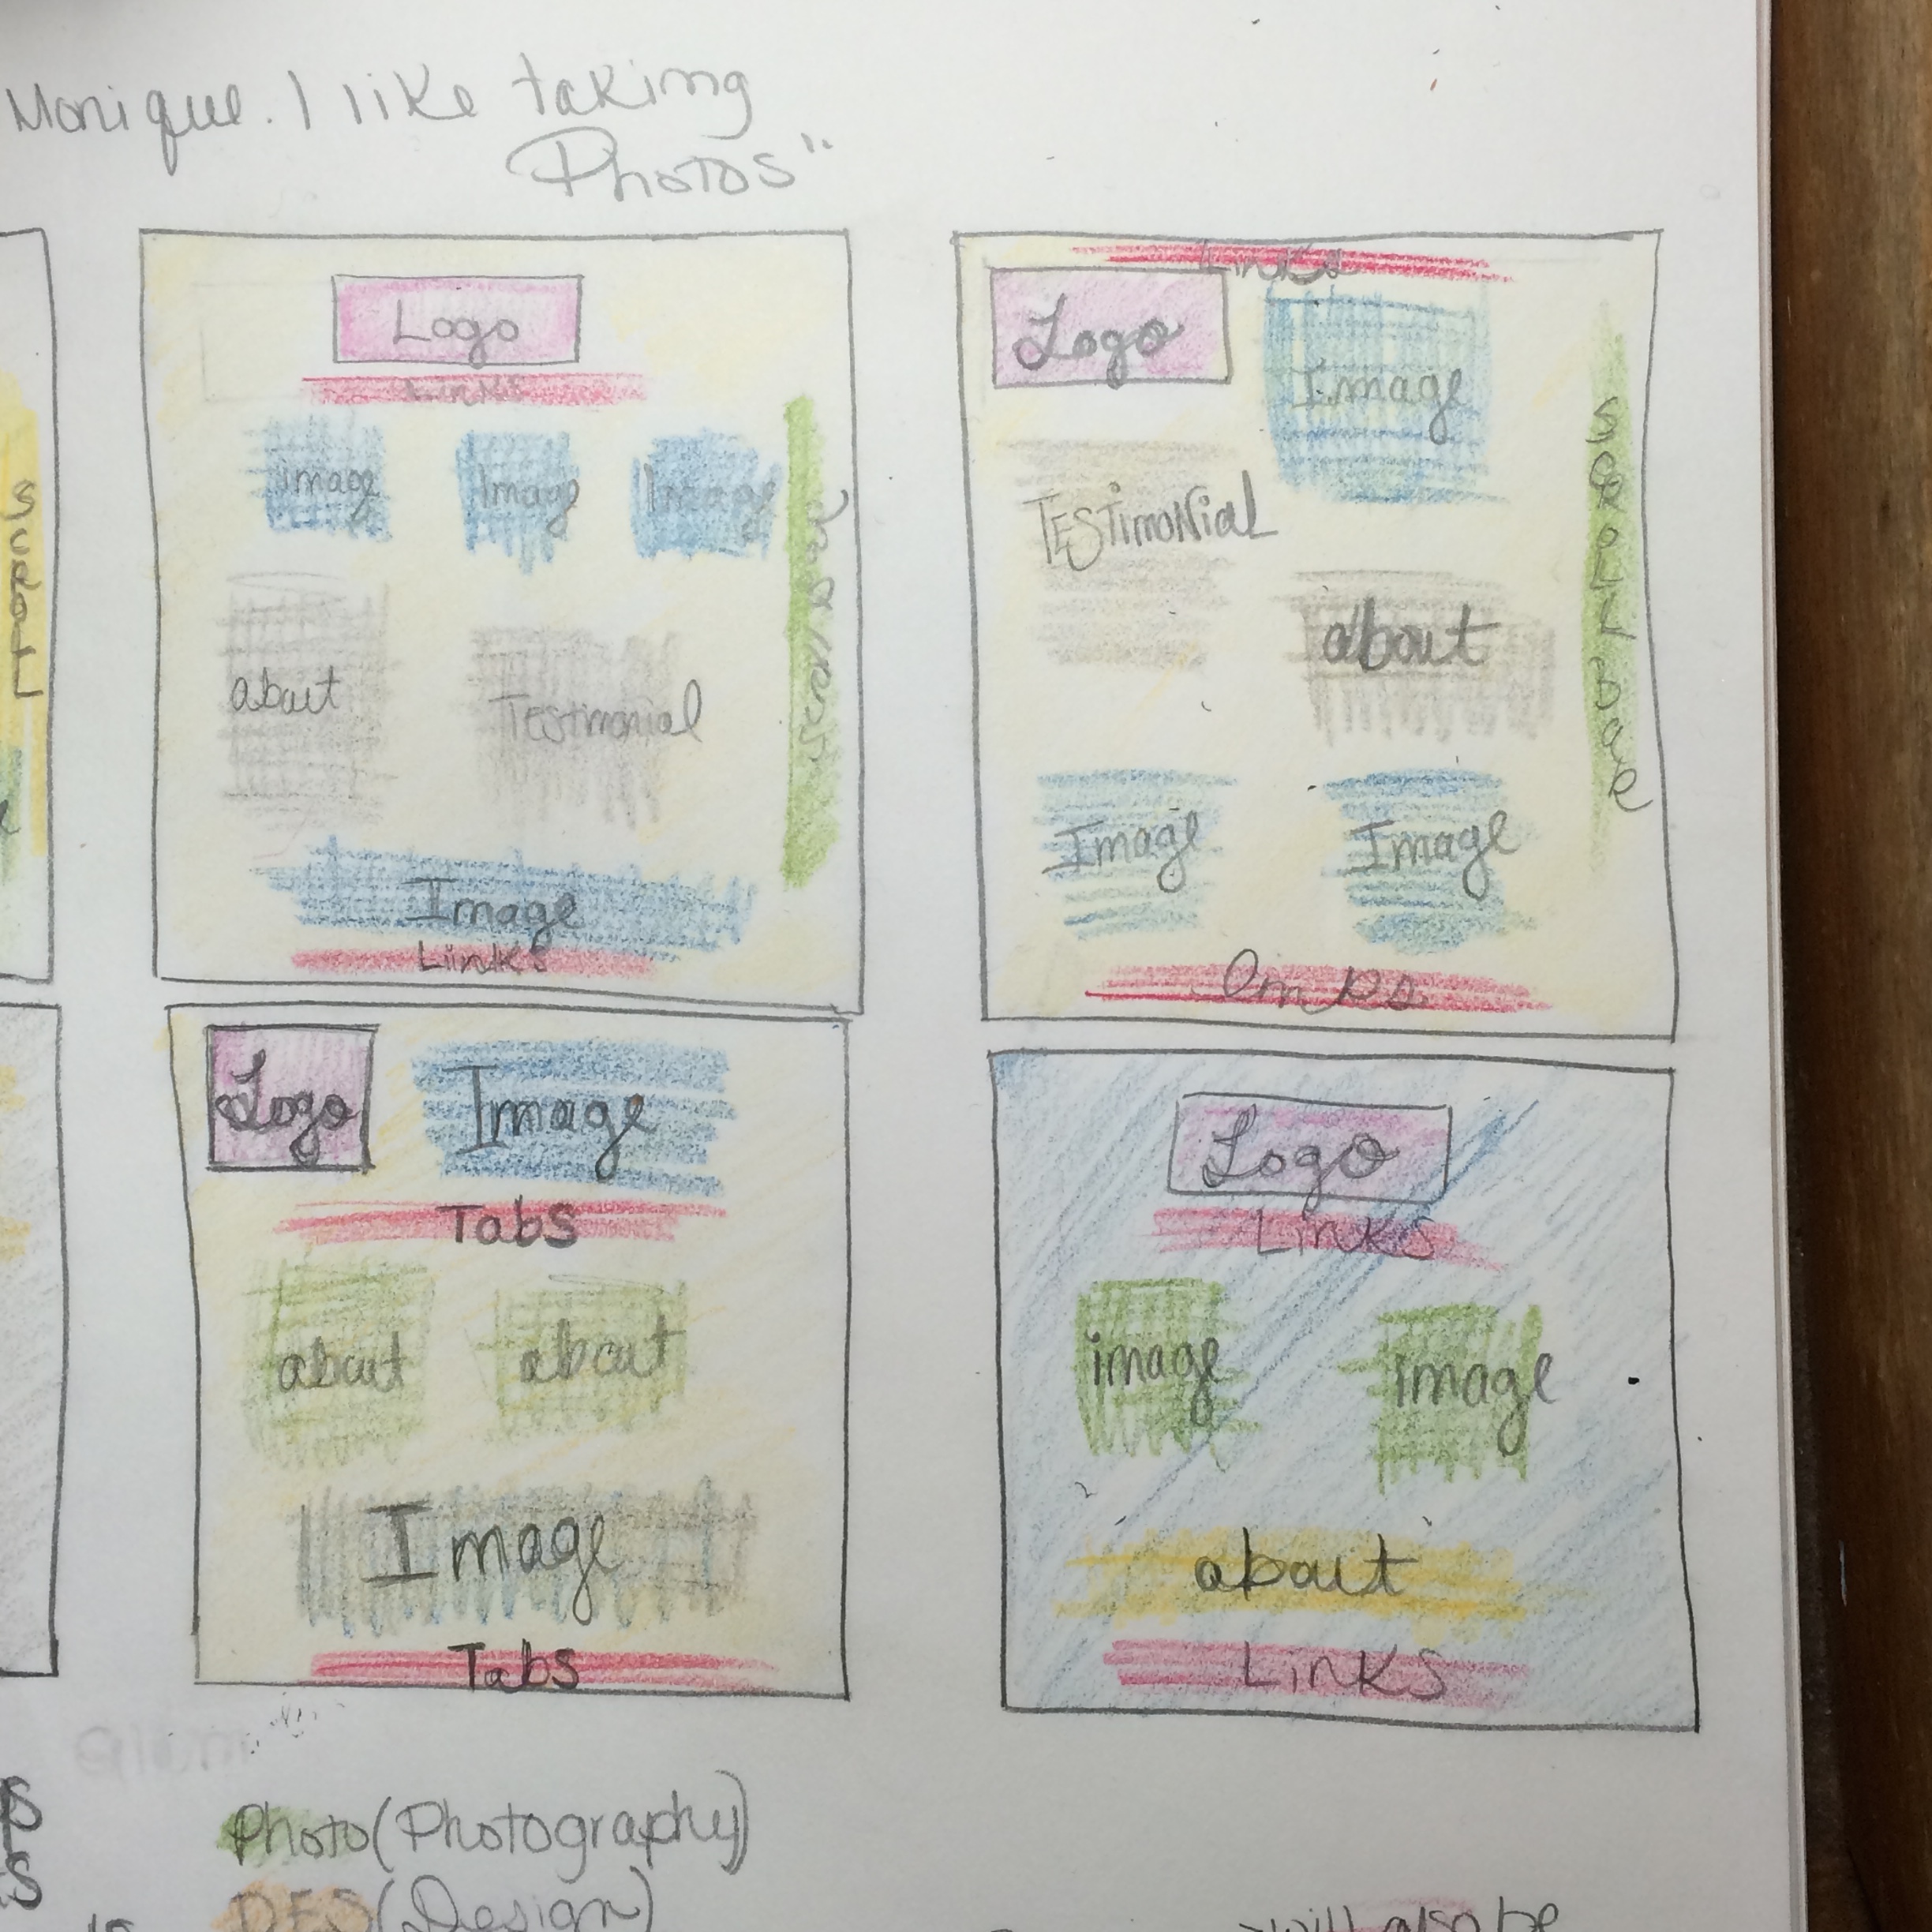 Monique. I like taking
Photos"
SCROLL
Logo
Links
image
Image
Image
about
Testimonial
Image
Links
Links
Logo
Image
TESTimoNiaL
about
SCROLL bar
Image
Image
Logo
Image
Tabs
about
about
Image
Tabs
Logo
Links
image
image
about
Links
Photo(Photography)
DES(Design)
will also be